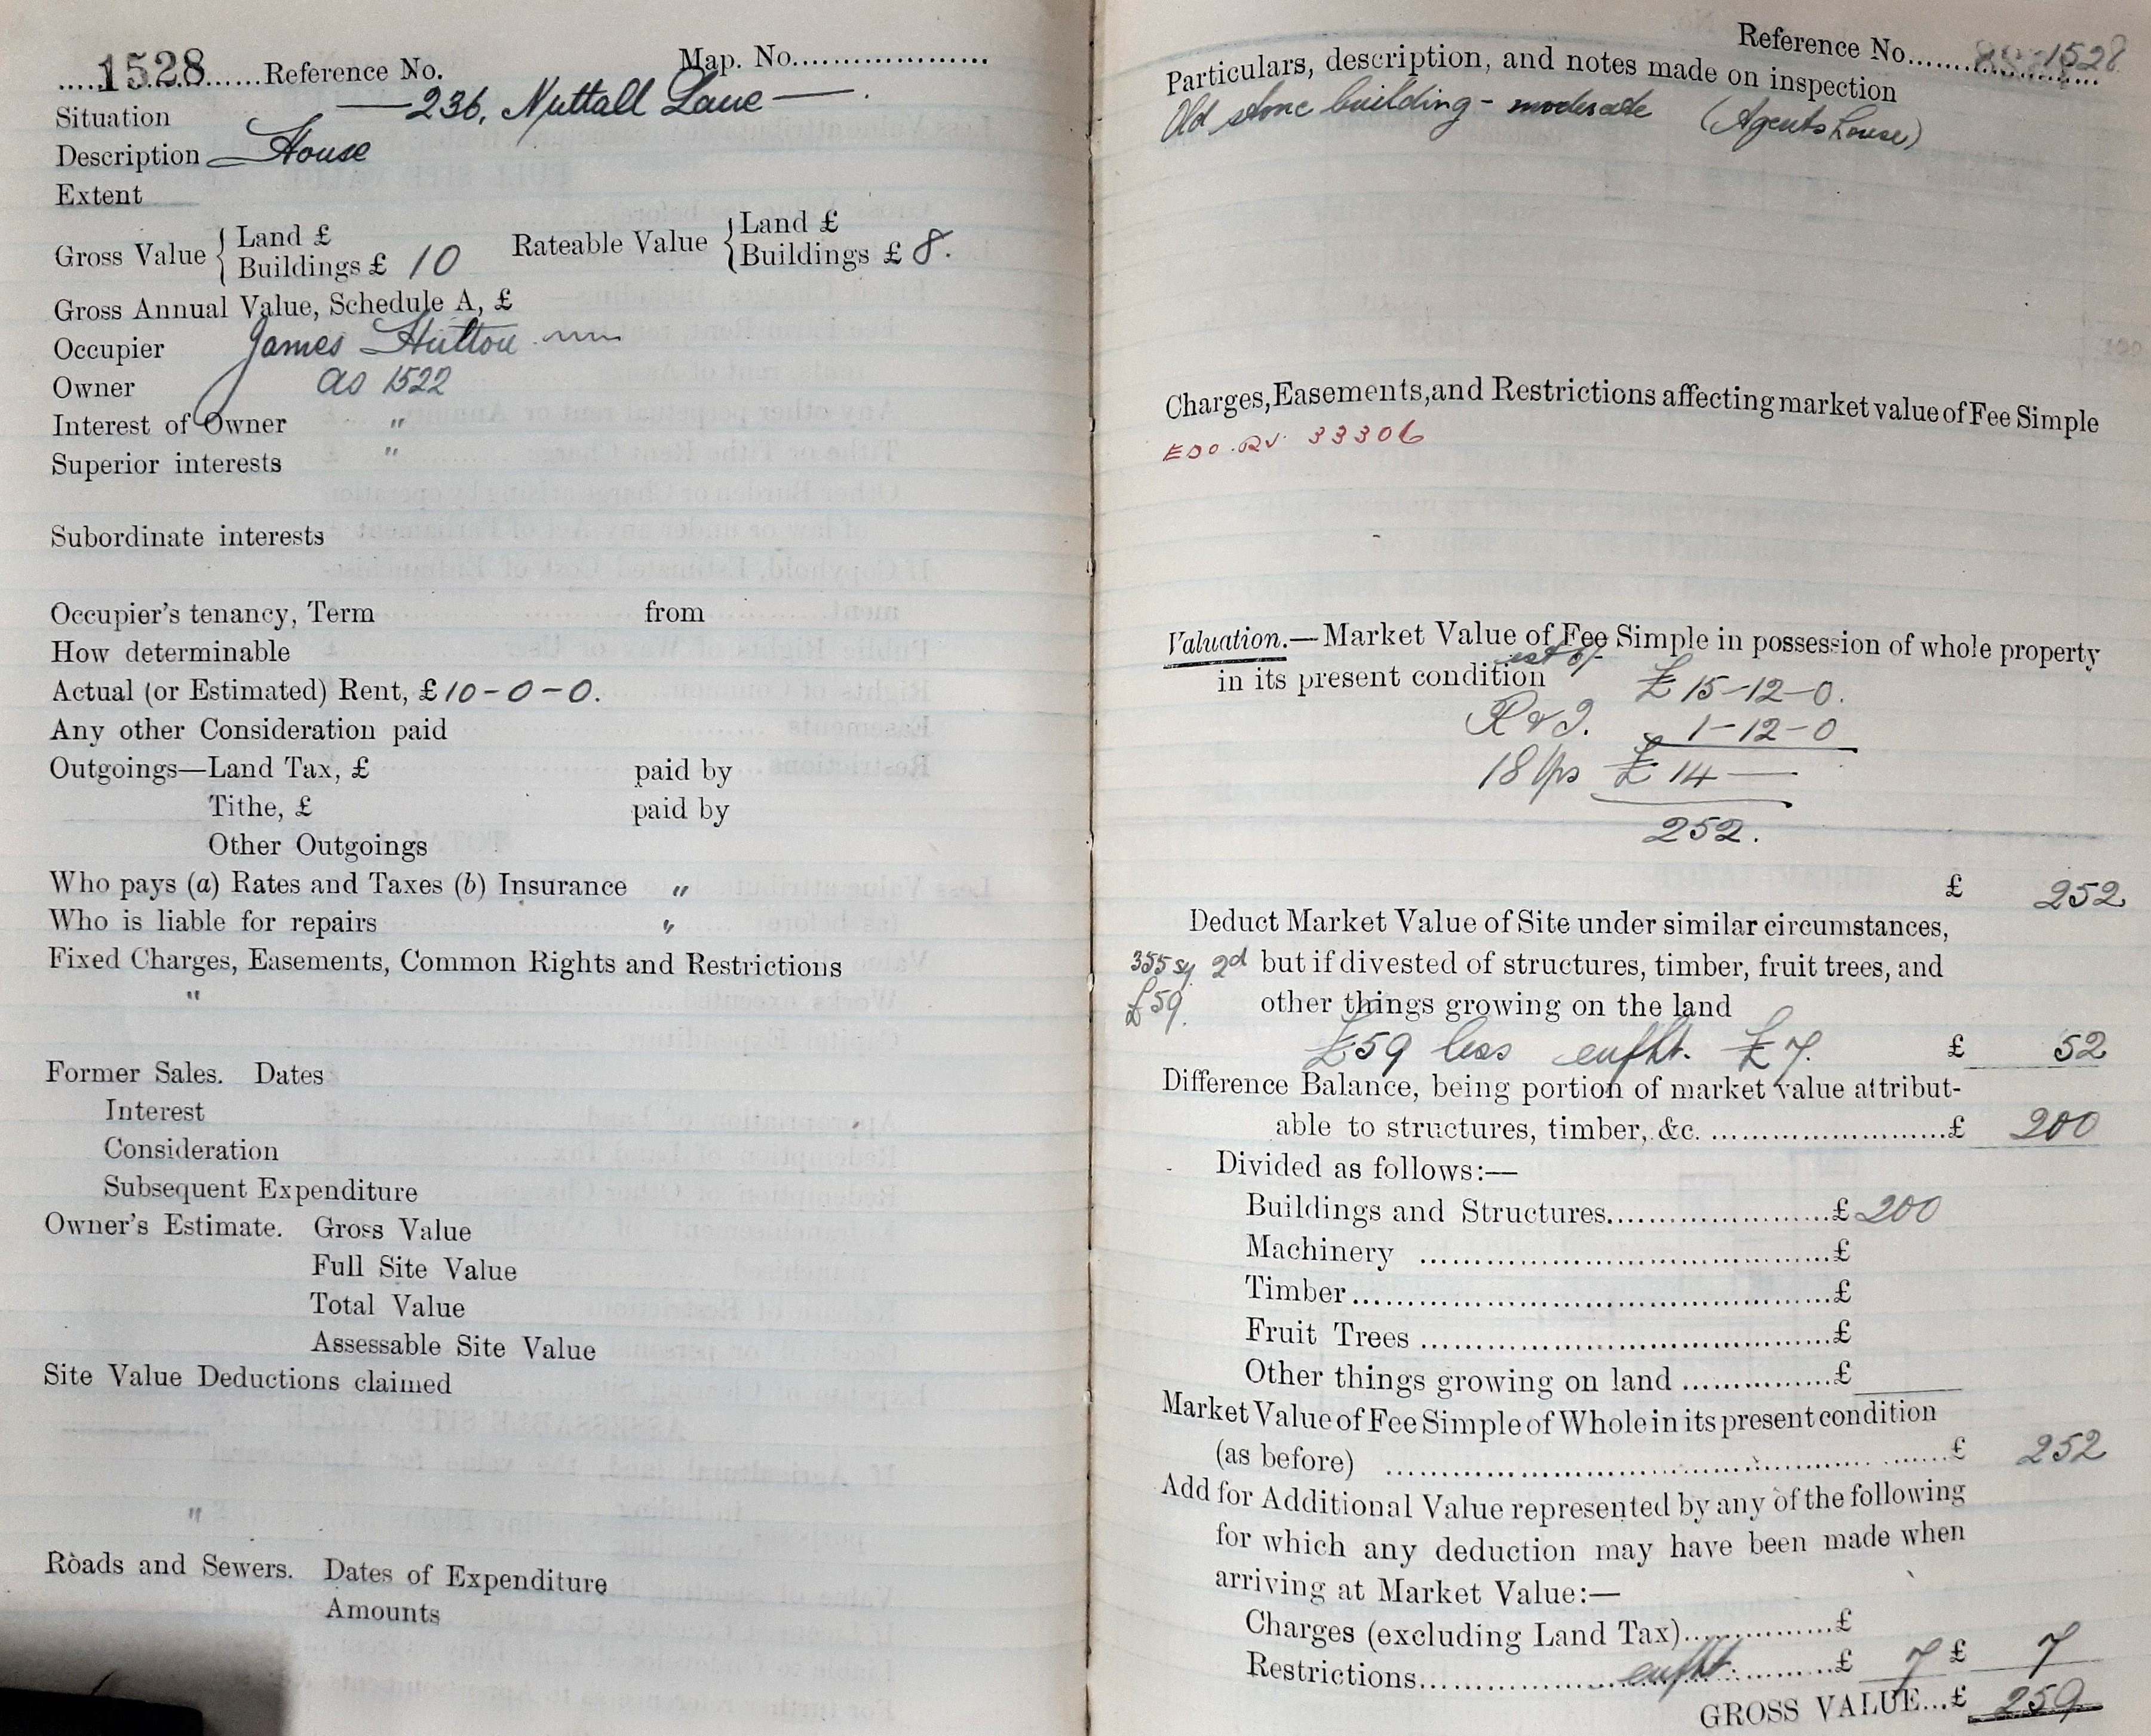 1528 Reference No. Map. No.
Situation — 236, Nuttall Lane —
Description House
Extent
Gross Value { Land £
Buildings £ 10
Rateable Value { Land £
Buildings £ 8.
Gross Annual Value, Schedule A, £
Occupier James Hutton
Owner as 1522
Interest of Owner "
Superior interests "
Subordinate interests
Occupier's tenancy, Term from
How determinable
Actual (or Estimated) Rent, £ 10-0-0.
Any other Consideration paid
Outgoings—Land Tax, £ paid by
Tithe, £ paid by
Other Outgoings
Who pays (a) Rates and Taxes (b) Insurance "
Who is liable for repairs "
Fixed Charges, Easements, Common Rights and Restrictions
"
Former Sales. Dates
Interest
Consideration
Subsequent Expenditure
Owner's Estimate. Gross Value
Full Site Value
Total Value
Assessable Site Value
Site Value Deductions claimed
"
Roads and Sewers. Dates of Expenditure
Amounts
Reference No. 1528
Particulars, description, and notes made on inspection
Old stone building - moderate (Agents house)
Charges, Easements, and Restrictions affecting market value of Fee Simple
33306
Valuation.—Market Value of Fee Simple in possession of whole property
in its present condition est at
£ 15-12-0.
1-12-0
18 yps £ 14 —
252.
£ 252
Deduct Market Value of Site under similar circumstances,
355 sy 2d but if divested of structures, timber, fruit trees, and
£59. other things growing on the land
£59 less enfht. £7. £ 52
Difference Balance, being portion of market value attribut-
able to structures, timber, &c. £ 200
Divided as follows:—
Buildings and Structures £ 200
Machinery £
Timber £
Fruit Trees £
Other things growing on land £
Market Value of Fee Simple of Whole in its present condition
(as before) £ 252
Add for Additional Value represented by any of the following
for which any deduction may have been made when
arriving at Market Value:—
Charges (excluding Land Tax) £
Restrictions enfht. £ 7 £ 7
GROSS VALUE...£ 259